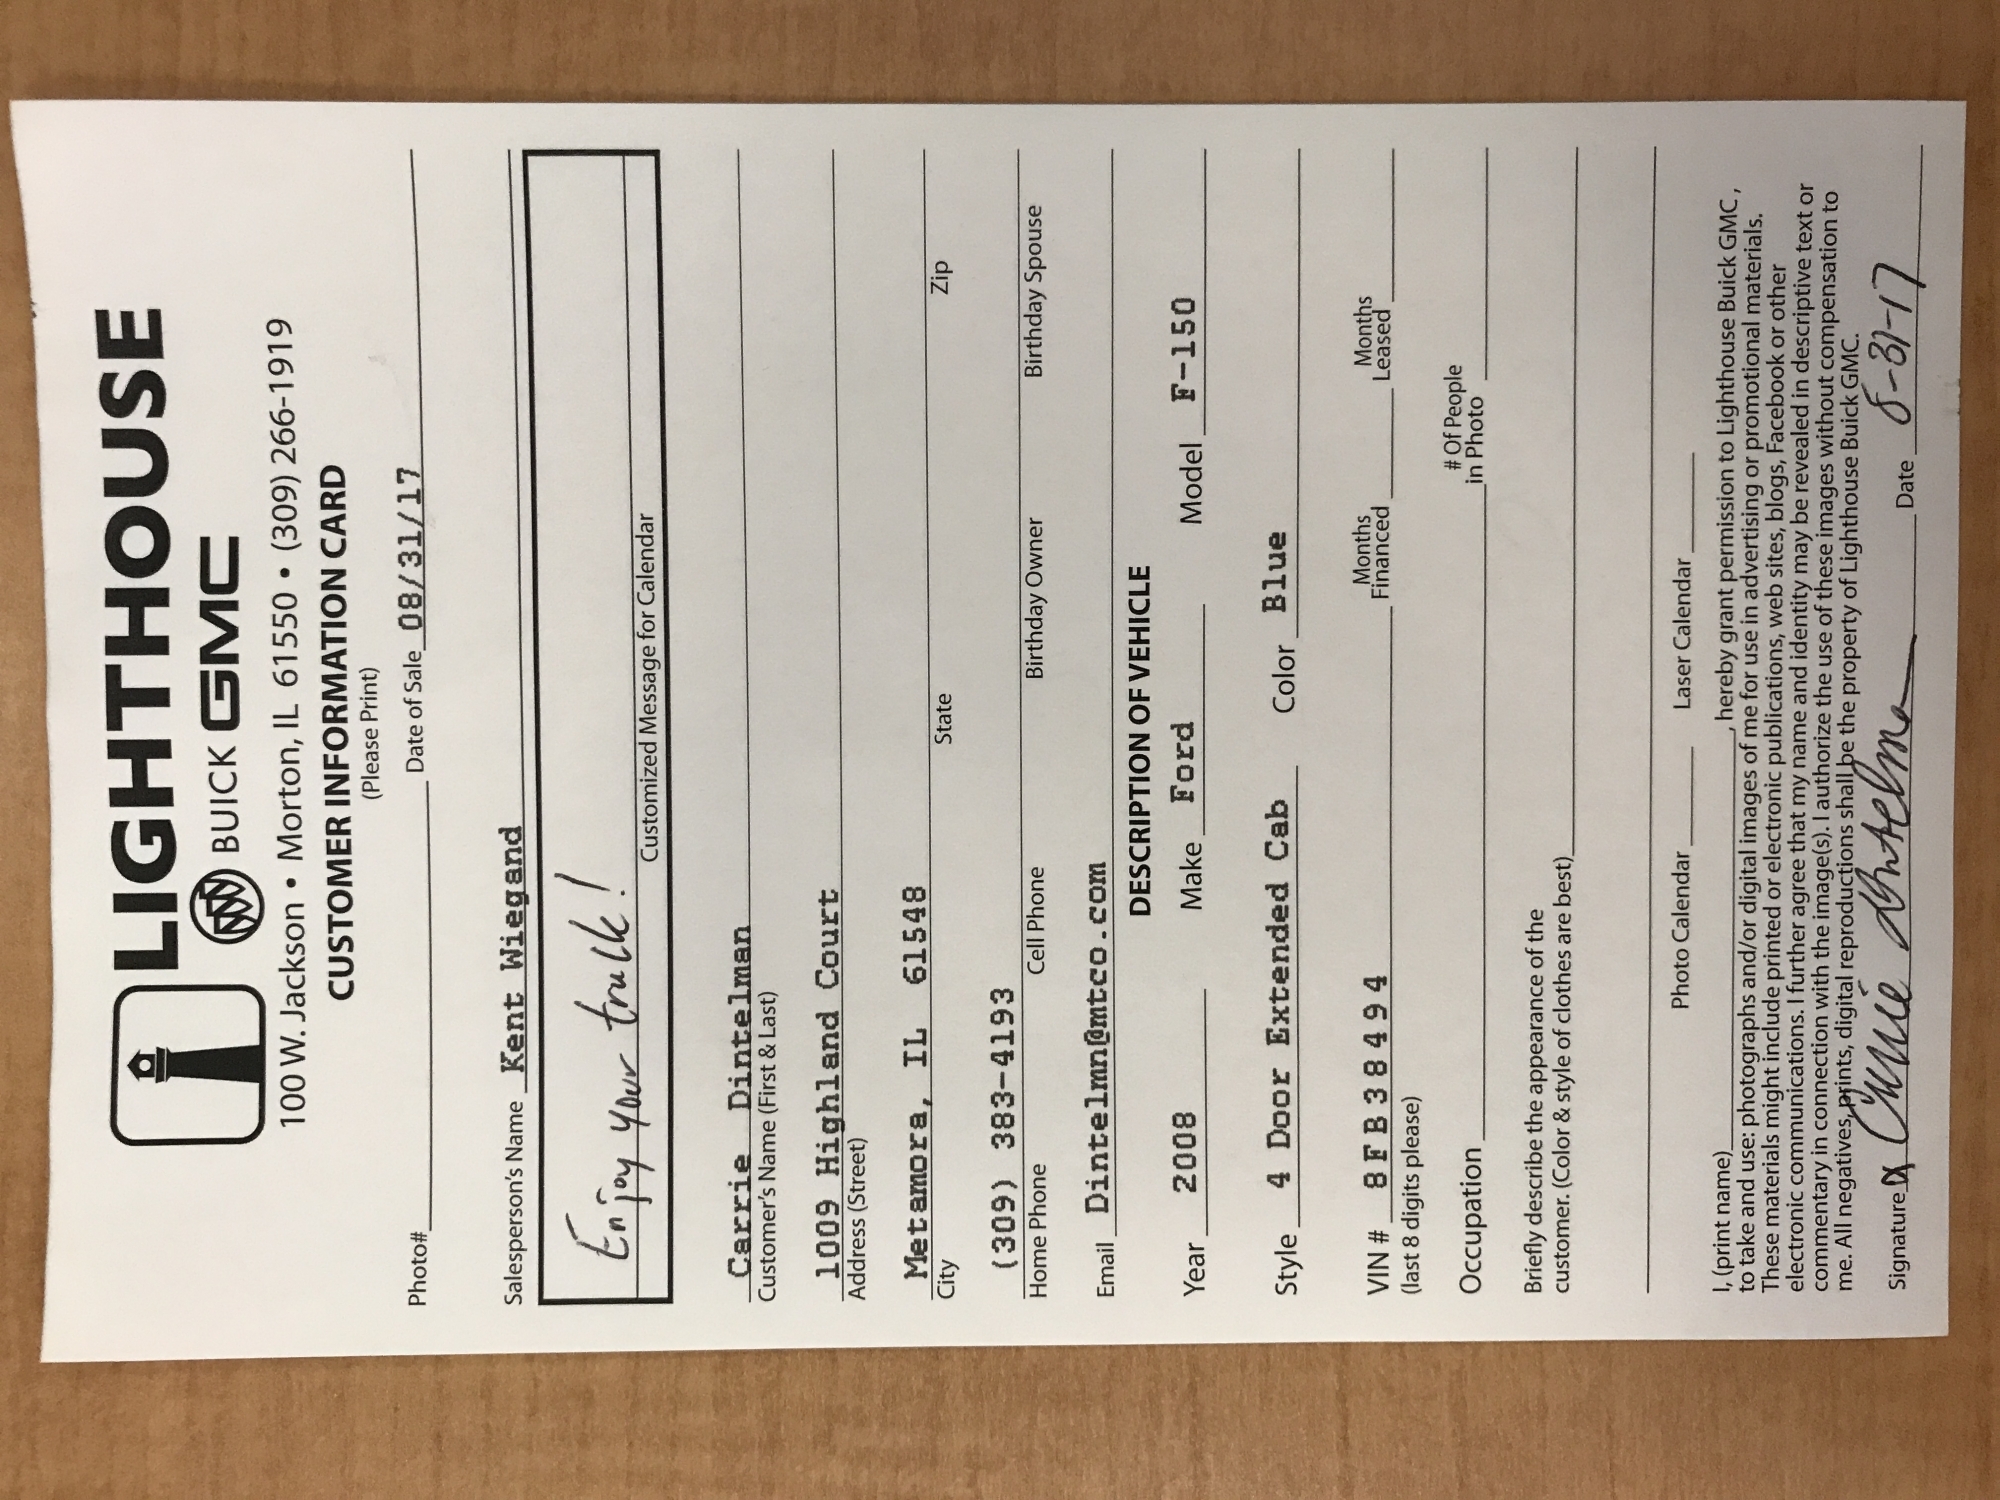 LIGHTHOUSE
BUICK GMC
100 W. Jackson • Morton, IL 61550 • (309) 266-1919
CUSTOMER INFORMATION CARD
(Please Print)
Photo# Date of Sale 08/31/17
Salesperson's Name Kent Wiegand
Enjoy your truck!
Customized Message for Calendar
Carrie Dintelman
Customer's Name (First & Last)
1009 Highland Court
Address (Street)
Metamora, IL 61548
City State Zip
(309) 383-4193
Home Phone Cell Phone Birthday Owner Birthday Spouse
Email Dintelmn@mtco.com
DESCRIPTION OF VEHICLE
Year 2008 Make Ford Model F-150
Style 4 Door Extended Cab Color Blue
VIN # 8FB38494 Months Financed Months Leased
(last 8 digits please)
Occupation # Of People in Photo
Briefly describe the appearance of the
customer. (Color & style of clothes are best)
Photo Calendar Laser Calendar
I, (print name) , hereby grant permission to Lighthouse Buick GMC,
to take and use: photographs and/or digital images of me for use in advertising or promotional materials.
These materials might include printed or electronic publications, web sites, blogs, Facebook or other
electronic communications. I further agree that my name and identity may be revealed in descriptive text or
commentary in connection with the image(s). I authorize the use of these images without compensation to
me. All negatives, prints, digital reproductions shall be the property of Lighthouse Buick GMC.
Signature X Carrie Dintelman Date 8-31-17